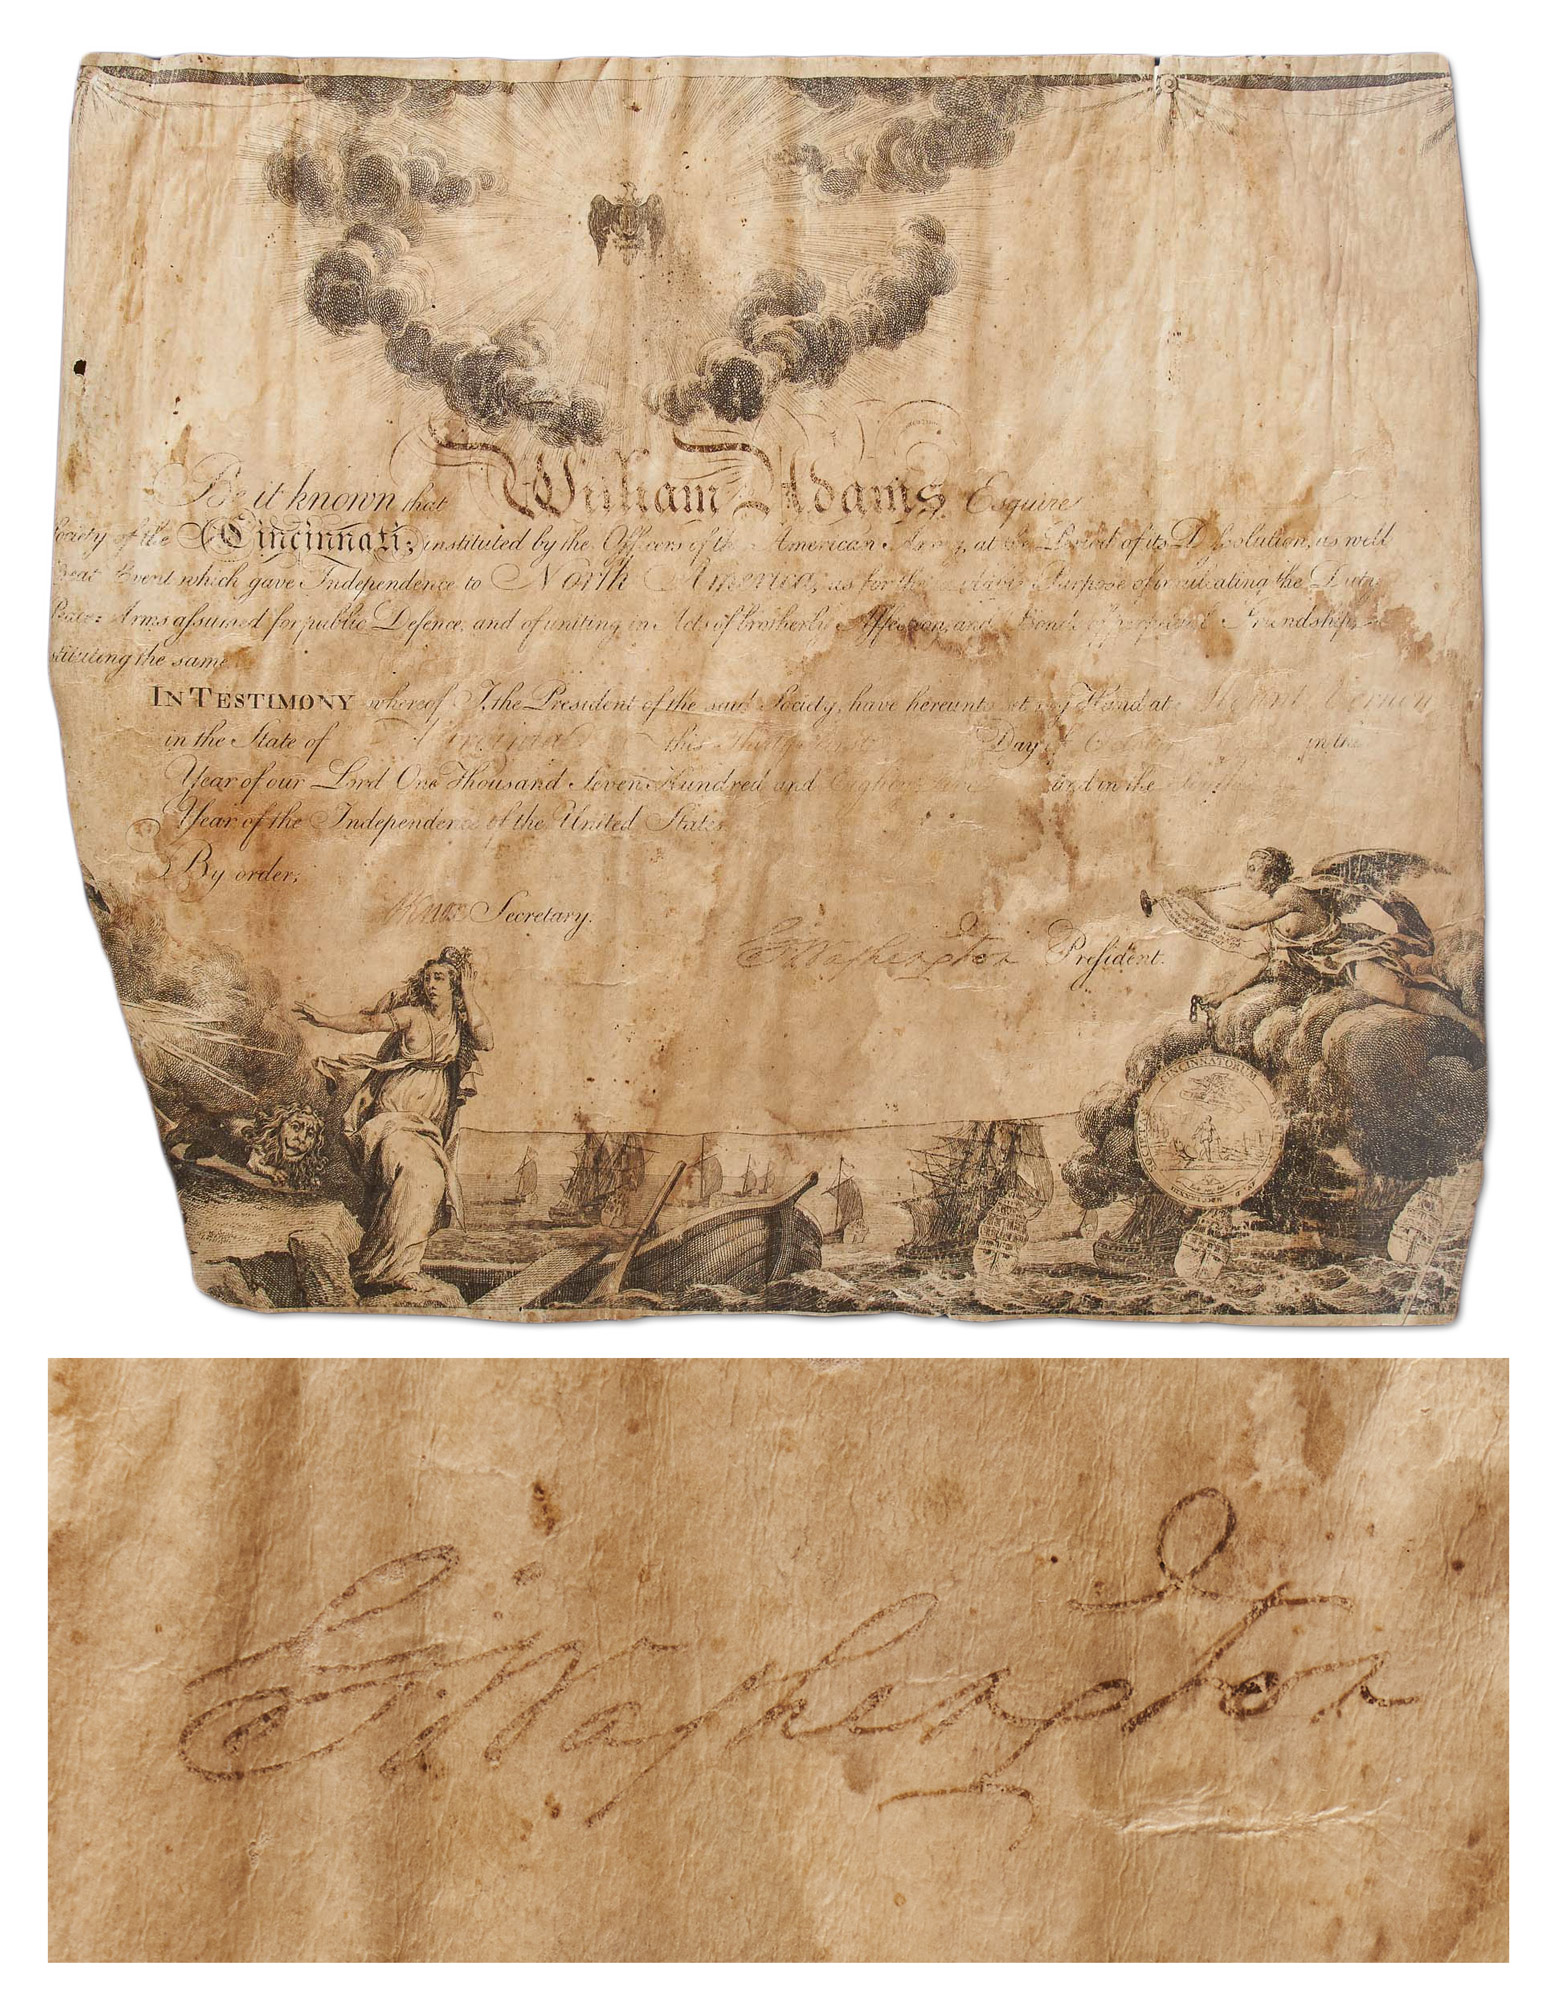 Be it known that William Adams Esquire
Society of the Cincinnati; instituted by the Officers of the American Army, at the Period of its Dissolution, as well
Great Event which gave Independence to North America, as for the Purpose of inculcating the Duty
Peace Arms assumed for public Defence, and of uniting in Acts of brotherly Affection, and Bonds of perpetual Friendship,
stituting the same
IN TESTIMONY whereof I, the President of the said Society, have hereunto set my Hand at Mount Vernon
in the State of Virginia this Thirty first Day of October in the
Year of our Lord One Thousand Seven Hundred and Eighty Five and in the
Year of the Independence of the United States.
By order,
HKnox Secretary.
GWashington President.
CINCINNATORUM
GWashington